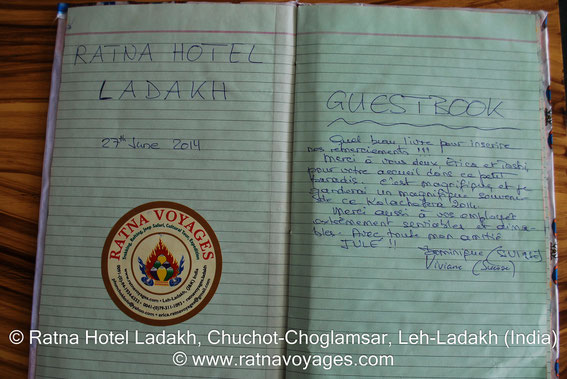 RATNA HOTEL
LADAKH
27th June 2014
RATNA VOYAGES
www.ratnavoyages.com • Leh-Ladakh, (J&K) India
GUESTBOOK
Quel beau livre pour inscrire
nos remerciements !!!
Merci à vous deux Erica et Tashi,
pour votre accueil dans ce petit
paradis. C'est magnifique et je
garderai un magnifique souvenir
de ce Kalachakra 2014.
Merci aussi à vos employés
extrêmement serviables et
Avec toute mon amitié
JULE !!
Dominique (SUISSE)
Viviane (Suisse)
© Ratna Hotel Ladakh, Chuchot-Choglamsar, Leh-Ladakh (India)
© www.ratnavoyages.com